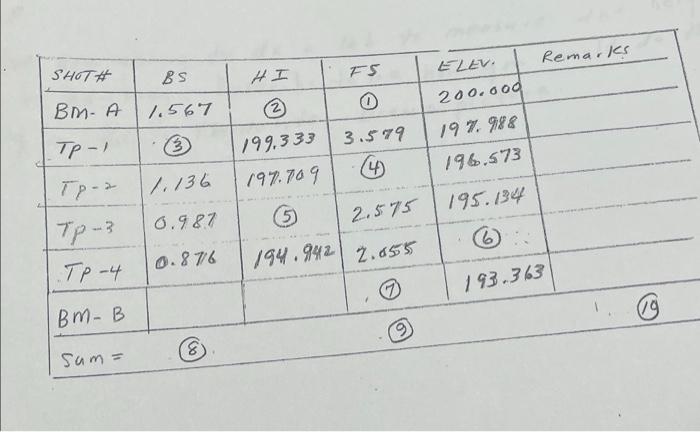 SHOT # BS HI FS ELEV. Remarks
BM-A 1.567 ② ① 200.000
TP-1 ③ 199.333 3.579 197.988
TP-2 1.136 197.709 ④ 196.573
TP-3 0.987 ⑤ 2.575 195.134
TP-4 0.876 194.942 2.055 ⑥
BM-B ⑦ 193.363
Sum = ⑧ ⑨ ⑲